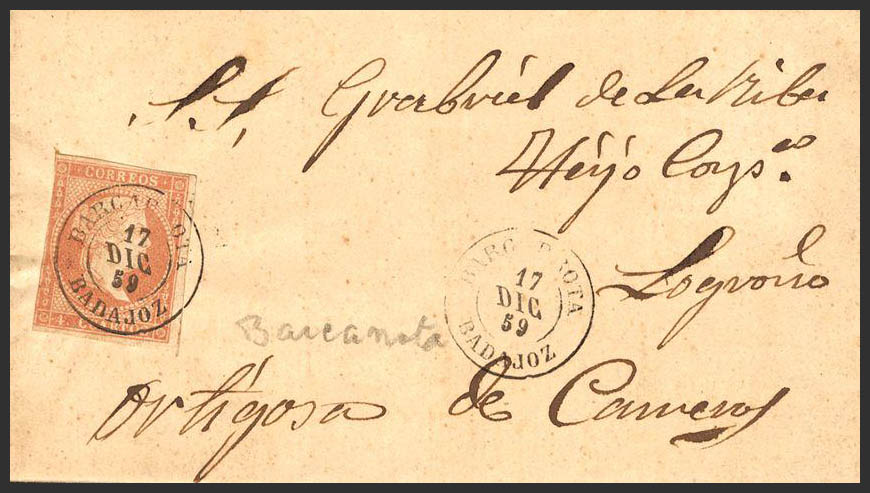 S.S. Grabriel de La Riba
Hijo Comp.
Logroño
Ortigosa de Cameros
CORREOS
BARCARROTA
17
DIC
59
BADAJOZ
4. CUARTOS
BARCARROTA
17
DIC
59
BADAJOZ
Barcarrota